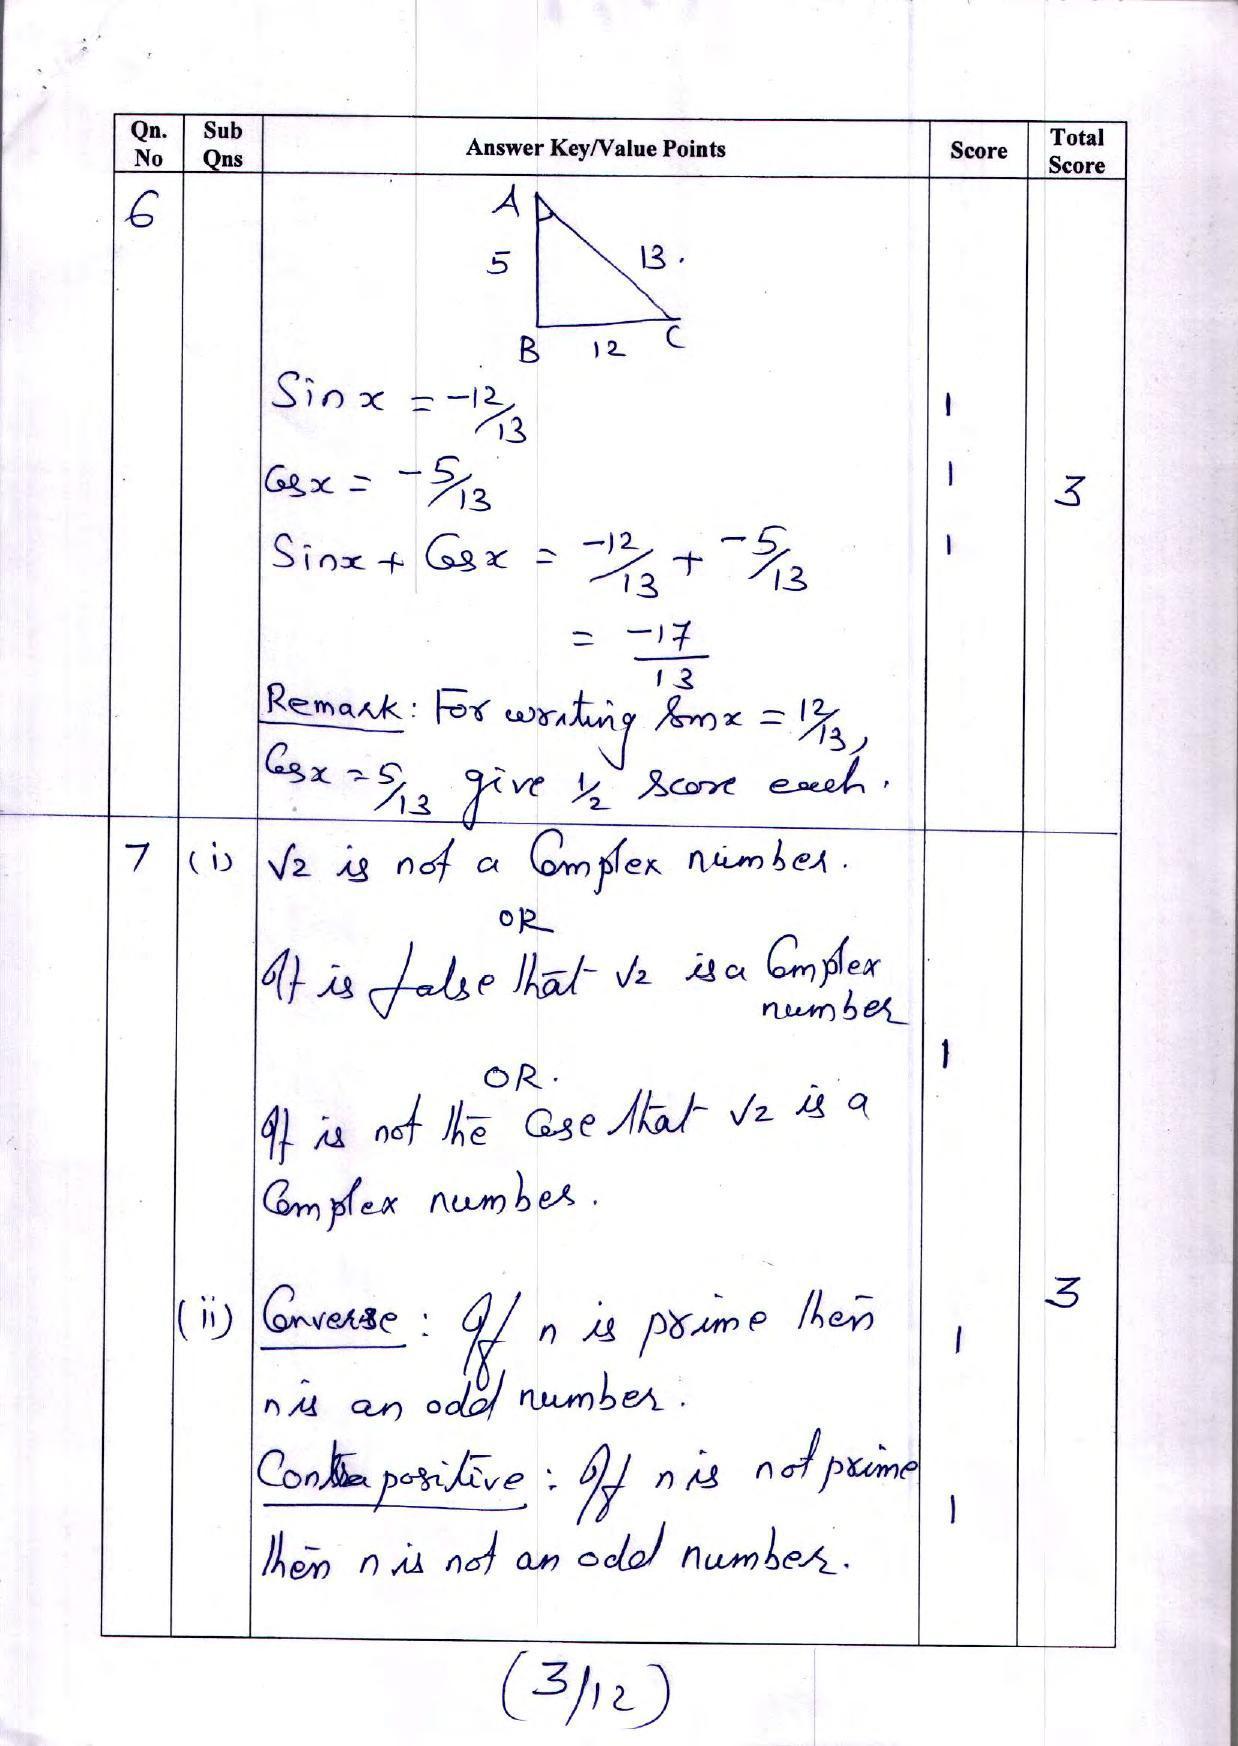 Qn. No Sub Qns Answer Key/Value Points Score Total Score
6
A
5 13.
B 12 C
Sin x = -12/13 1
Cos x = -5/13 1 3
Sin x + Cos x = -12/13 + -5/13 1
= -17/13
Remark: For writing Sin x = 12/13,
Cos x = 5/13 give 1/2 score each.
7 (i) √2 is not a Complex number.
OR
It is false that √2 is a Complex
number
1
OR.
It is not the Case that √2 is a
Complex number.
3
(ii) Converse : If n is prime then 1
n is an odd number.
Contrapositive : If n is not prime 1
then n is not an odd number.
(3/12)